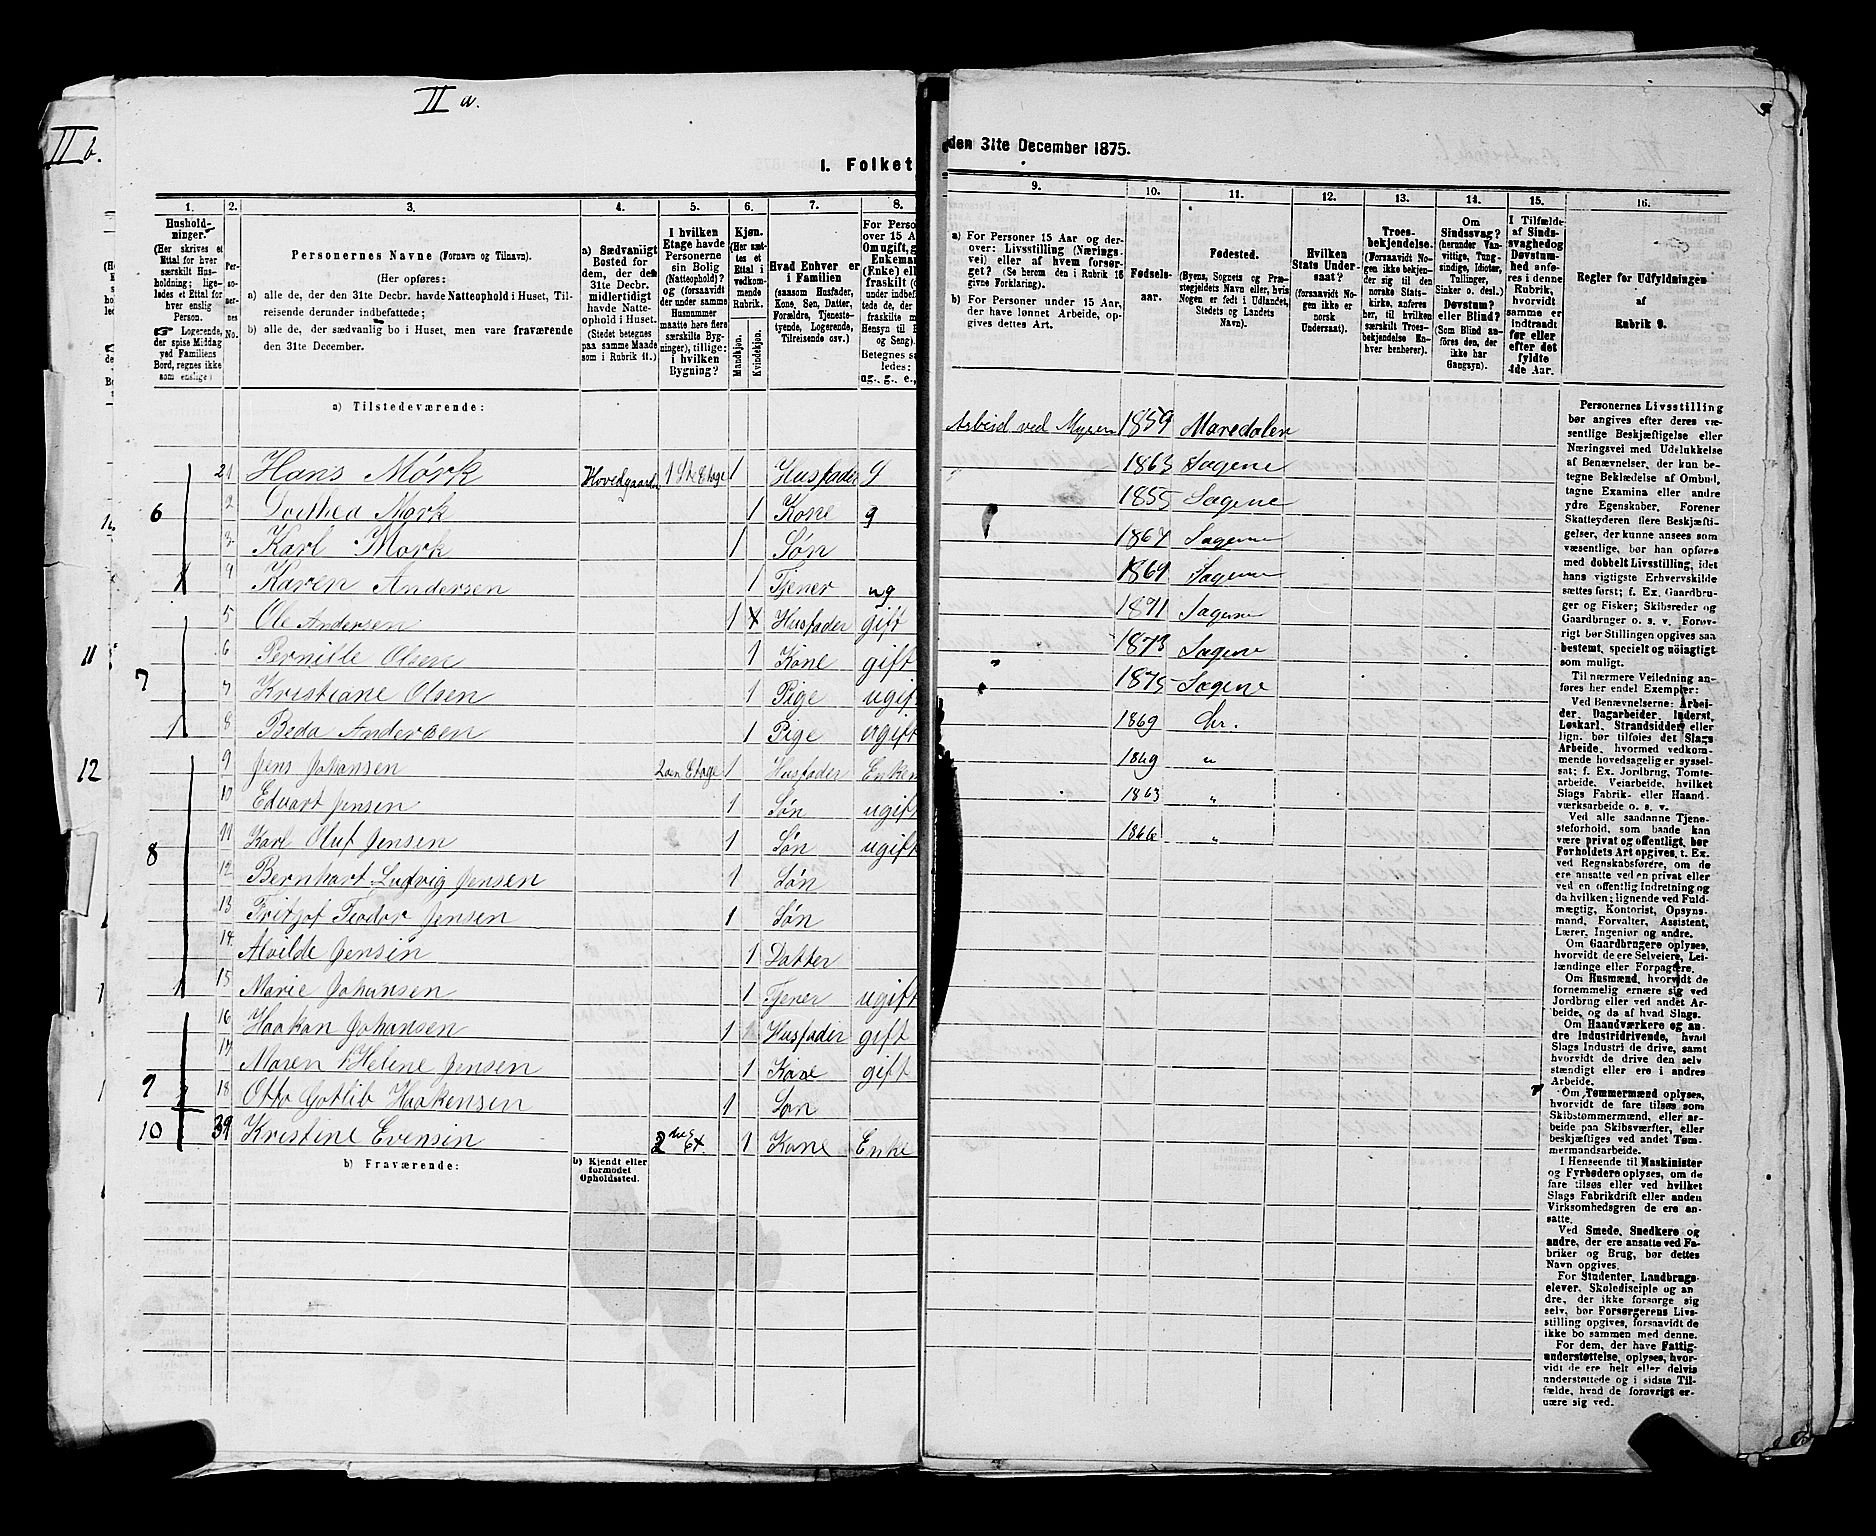 II a.
II b.
I. Folket
1.
2.
3.
4.
5.
6.
7.
8.
Hushold-
ninger.
(Her skrives et
Ettal for hver
særskilt Hus-
holdning; lige-
ledes et Ettal for
hver enslig
Person.
Logerende,
der spise Middag
ved Familiens
Bord, regnes ikke
som enslige).
Per-
so-
ner-
nes
No.
Personernes Navne (Fornavn og Tilnavn).
(Her opføres:
a) alle de, der den 31te Decbr. havde Natteophold i Huset, Til-
reisende derunder indbefattede;
b) alle de, der sædvanlig bo i Huset, men vare fraværende
den 31te December.
a) Sædvanligt
Bosted for
dem, der den
31te Decbr.
midlertidigt
havde Natte-
ophold i Huset.
(Stedet betegnes
paa samme Maade
som i Rubrik 11.)
I hvilken
Etage havde
Personerne
sin Bolig
(Natteophold)? og
(forsaavidt
der under samme
Husnummer
maatte høre flere
særskilte Byg-
ninger), tillige:
i hvilken
Bygning?
Kjøn.
(Her sæt-
tes et
Ettal i
vedkom-
mende
Rubrik.
Mandkjøn.
Kvindekjøn.
Hvad Enhver er
i Familien
(saasom Husfader,
Kone, Søn, Datter,
Forældre, Tjeneste-
tyende, Logerende,
Tilreisende osv.)
For Perso
over 15 A
Om ugift, g
Enkeman
(Enke) ell
fraskilt (
under indbef
tede de, der
fraskilte m
Hensyn til B
og Seng).
Betegnes sa
ledes:
ug., g., e.,
a) Tilstedeværende:
21 Hans Mørk Hovedgaarden 1 Ste Etage 1 Husfader g
6 2 Dorthea Mørk 1 Kone g
3 Karl Mørk 1 Søn
4 Karen Andersen 1 Tjener ug
5 Ole Andersen 1 Husfader gift
11 6 Pernille Olsen 1 Kone gift
7 7 Kristiane Olsen 1 Pige ugift
8 Beda Andersen 1 Pige ugift
12 9 Jens Johansen 2den Etage 1 Husfader Enkem
10 Edvart Jensen 1 Søn ugift
8 11 Karl Oluf Jensen 1 Søn ugift
12 Bernhart Ludvig Jensen 1 Søn
13 Fritjof Teodor Jensen 1 Søn
14 Alvilde Jensen 1 Datter
15 Marie Johansen 1 Tjener ugift
16 Haakan Johansen 1 Husfader gift
17 Maren Helene Jensen 1 Kone gift
9 18 Otto Gotlib Haakensen 1 Søn
10 39 Kristine Evensen 2 Et. 1 Kone Enke
b) Fraværende:
b) Kjendt eller
formodet
Opholdssted.
den 31te December 1875.
9.
10.
11.
12.
13.
14.
15.
16.
a) For Personer 15 Aar og der-
over: Livsstilling (Nærings-
vei) eller af hvem forsør-
get? (Se herom den i Rubrik 16
givne Forklaring).
b) For Personer under 15 Aar,
der have lønnet Arbeide, op-
gives dettes Art.
Fødsels-
aar.
Fødested.
(Byens, Sognets og Præ-
stegjeldets Navn eller, hvis
Nogen er født i Udlandet,
Stedets og Landets
Navn).
Hvilken
Stats Under-
saat?
(forsaavidt No-
gen ikke er
norsk
Undersaat).
Troes-
bekjendelse.
(Forsaavidt No-
gen ikke bekjen-
der sig til den
norske Stats-
kirke, anføres
her, til hvilken
særskilt Troes-
bekjendelse En-
hver henhører).
Om
Sindssvag?
(herunder Van-
vittige, Tung-
sindige, Idioter,
Tullinger,
Sinker o. desl.).
Døvstum?
eller Blind?
(Som Blind an-
føres den, der
ikke har
Gangsyn).
I Tilfælde
af Sinds-
svaghed og
Døvstum-
hed anfø-
res i denne
Rubrik,
hvorvidt
samme er
indtraadt
før eller
efter det
fyldte
4de Aar.
Regler for Udfyldningen
af
Rubrik 9.
Arbeid ved Myren 1859 Maredalen
1863 Sagene
1855 Sagene
1867 Sagene
1869 Sagene
1871 Sagene
1873 Sagene
1875 Sagene
1869 Chr.
1869 "
1863 "
1866 "
Personernes Livsstilling
bør angives efter deres væ-
sentlige Beskjæftigelse eller
Næringsvei med Udelukkelse
af Benævnelser, der kun be-
tegne Beklædelse af Ombud,
tagne Examina eller andre
ydre Egenskaber. Forener
Skatteyderen flere Beskjæfti-
gelser, der kunne ansees som
væsentlige, bør han opføres
med dobbelt Livsstilling, idet
hans vigtigste Erhvervskilde
sættes først; f. Ex. Gaardbru-
ger og Fisker; Skibsreder og
Gaardbruger o. s. v. Forøv-
rigt bør Stillingen opgives saa
bestemt, specielt og nöiagtigt
som muligt.
Til nærmere Veiledning an-
føres her endel Exempler:
Ved Benævnelserne: Arbei-
der, Dagarbeider, Inderst,
Løskarl, Strandsidder eller
lign. bør tilføies det Slags
Arbeide, hvormed vedkom-
mende hovedsagelig er syssel-
sat; f. Ex. Jordbrug, Tomte-
arbeide, Veiarbeide, hvilket
Slags Fabrik- eller Haand-
værksarbeide o. s. v.
Ved alle saadanne Tjene-
steforhold, som baade kan
være privat og offentligt, bør
Forholdets Art opgives, t. Ex.
ved Regnskabsførere, om de
ere ansatte ved en privat eller
ved en offentlig Indretning og
da hvilken; lignende ved Fuld-
mægtig, Kontorist, Opsyns-
mand, Forvalter, Assistent,
Lærer, Ingeniør og andre.
Om Gaardbrugere oplyses,
hvorvidt de ere Selveiere, Lei-
lændinge eller Forpagtere.
Om Husmænd, hvorvidt de
fornemmelig ernære sig ved
Jordbrug eller ved andet Ar-
beide, og da af hvad Slags.
Om Haandværkere og an-
dre Industridrivende, hvad
Slags Industri de drive, samt
hvorvidt de drive den selv-
stændigt eller ere i andres
Arbeide.
Om Tømmermænd oplyses,
hvorvidt de fare tilsøs som
Skibstømmermænd, eller ar-
beide paa Skibsværfter, eller
beskjæftiges ved andet Tøm-
mermandsarbeide.
I Henseende til Maskinister
og Fyrbødere oplyses, om de
fare tilsøs eller ved hvilket
Slags Fabrikdrift eller anden
Virksomhedsgren de ere an-
satte.
Ved Smede, Snedkere og
andre, der ere ansatte ved Fa-
briker og Brug, bør dettes
Navn opgives.
For Studenter, Landbrugs-
elever, Skoledisciple og an-
dre, der ikke forsørge sig
selv, bør Forsørgerens Livs-
stilling opgives, forsaavidt de
ikke bo sammen med denne.
For dem, der have Fattig-
understøttelse, oplyses, hvor-
vidt de ere helt eller delvis
understøttede og i sidste Til-
fælde, hvad de forøvrigt er-
nære sig ved.